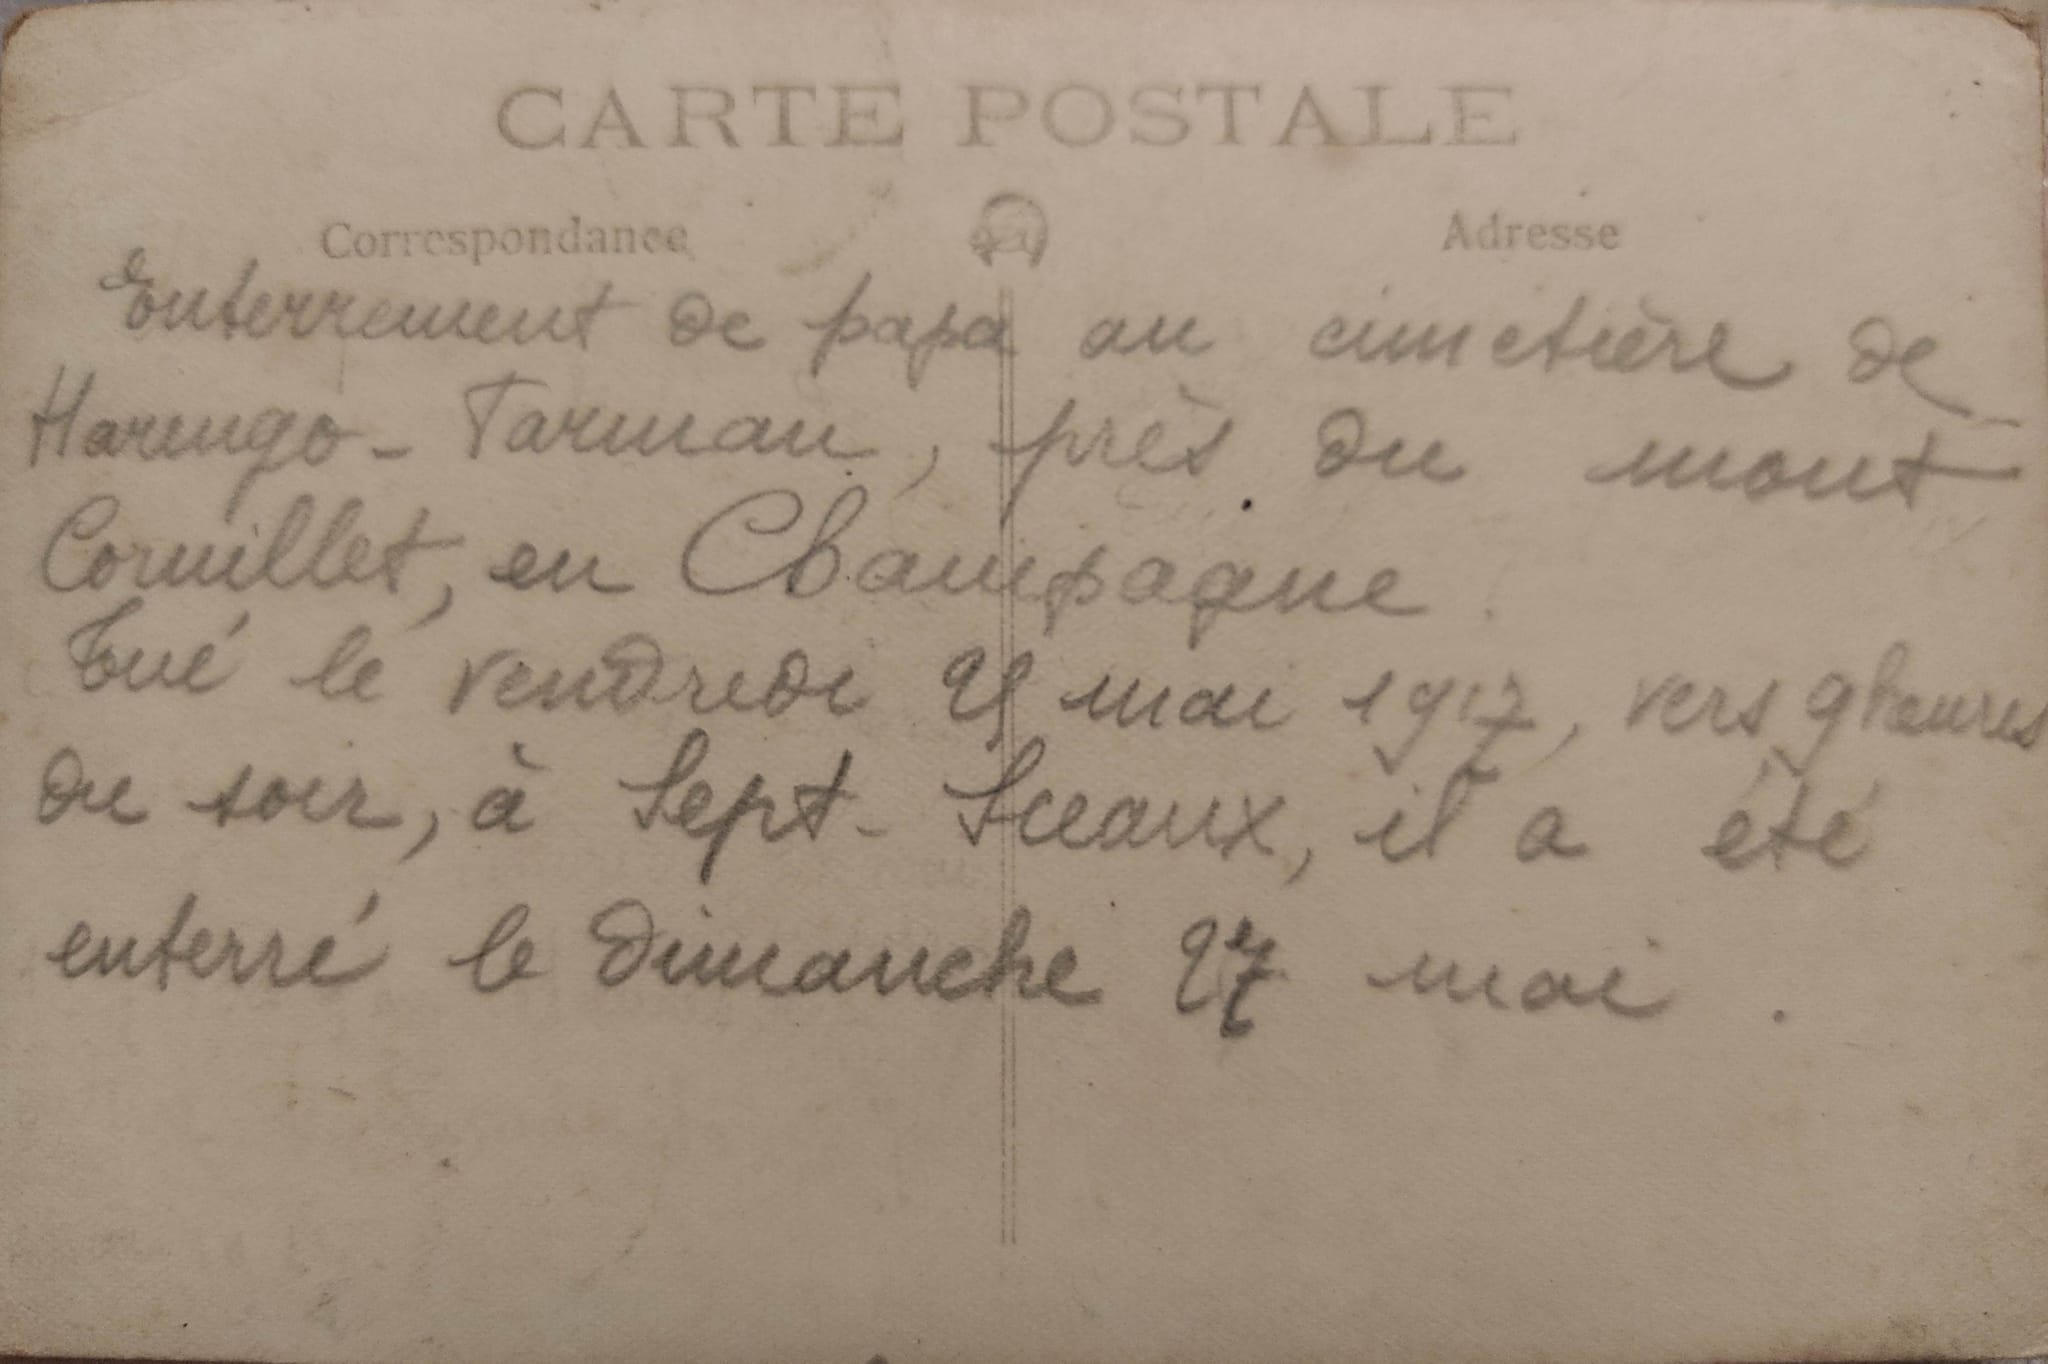 CARTE POSTALE
Correspondance
Adresse
Enterrement de papa au cimetière de
Harengo - Tarman, près du mont
Cornillet, en Champagne.
Tué le vendredi 25 mai 1917, vers 9 heures
du soir, à Sept-Sceaux, il a été
enterré le dimanche 27 mai.